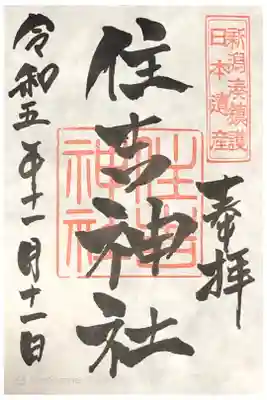 新潟湊鎮護
日本遺産
奉拝
住吉神社
住吉
神社
令和五年十一月十一日